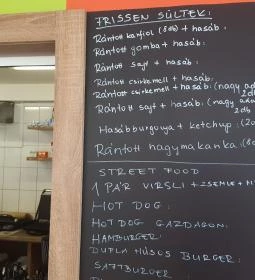 FRISSEN SÜLTEK:
Rántott karfiol (8db) + hasáb:
Rántott gomba + hasáb:
Rántott sajt + hasáb:
Rántott csirkemell + hasáb:
Rántott csirkemell + hasáb: (nagy
2db
Rántott sajt + hasáb: (nagy
2 db
Hasábburgonya + ketchup: (20
Rántott hagymakarika: (8
STREET FOOD
1 PÁR VIRSLI + ZSEMLE +
HOT DOG:
HOT DOG GAZDAGON:
HAMBURGER:
DUPLA HÚSOS BURGER:
SAJTBURGER